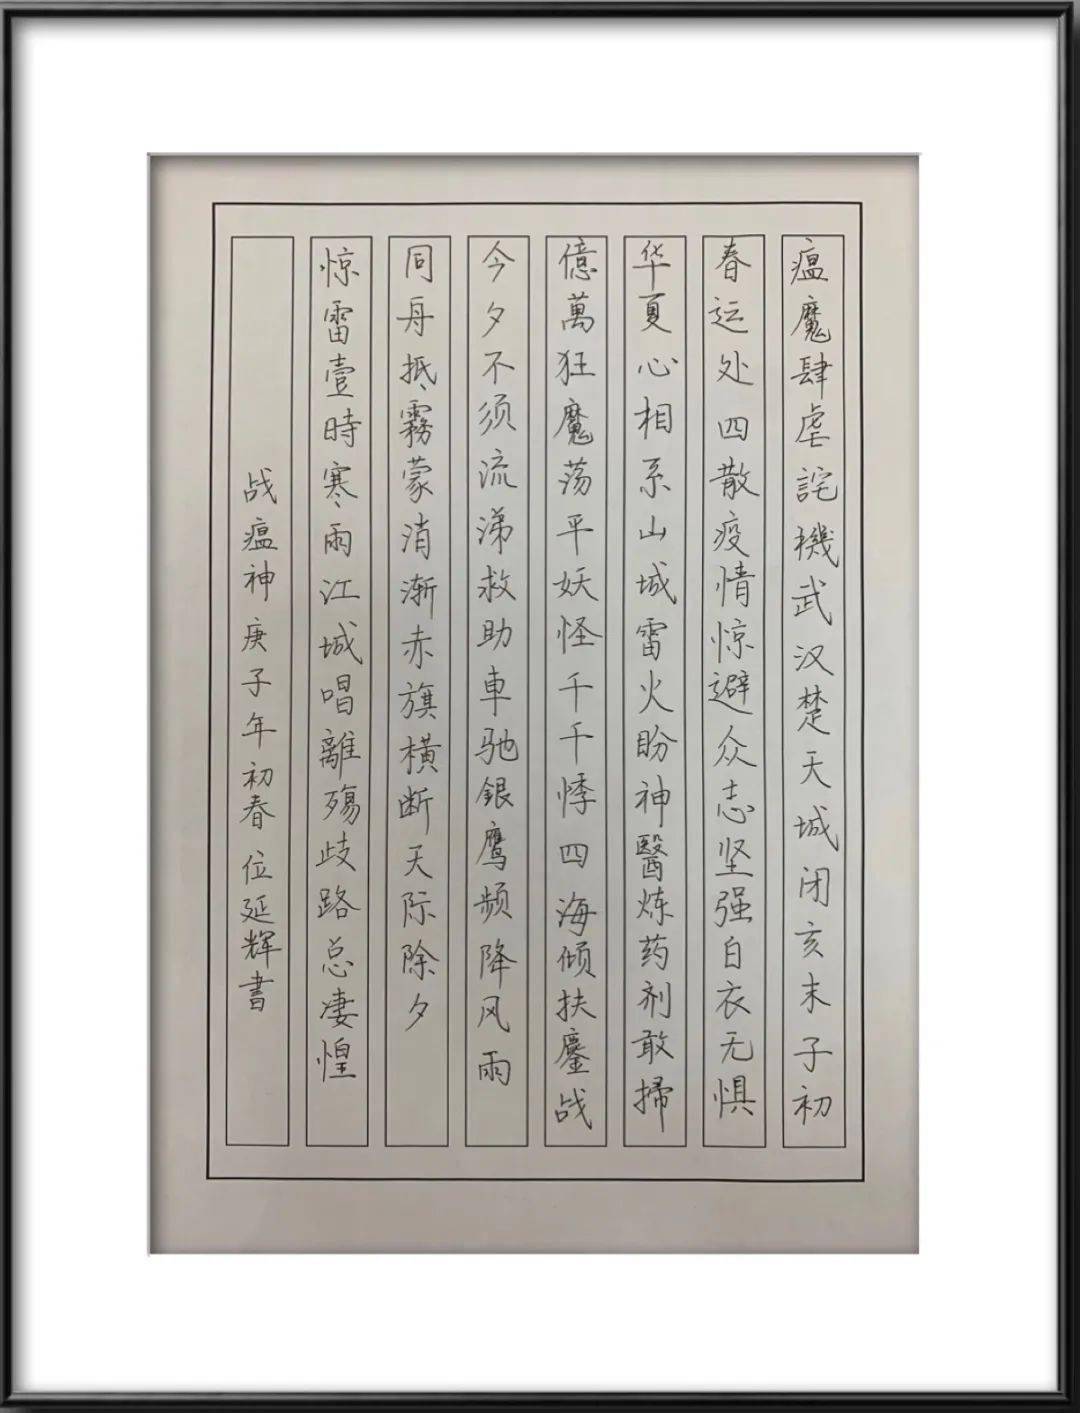 瘟魔肆虐詫機武汉楚天城闭亥末子初
春运处四散疫情惊避众志坚强白衣无惧
华夏心相系山城雷火盼神醫炼药剂敢掃
億萬狂魔荡平妖怪千千悸四海倾扶鏖战
今夕不须流涕救助車驰銀鹰频降风雨
同舟抵霧蒙消渐赤旗横断天际除夕
惊雷壹時寒雨江城唱離殤歧路总凄惶
战瘟神庚子年初春位延辉書